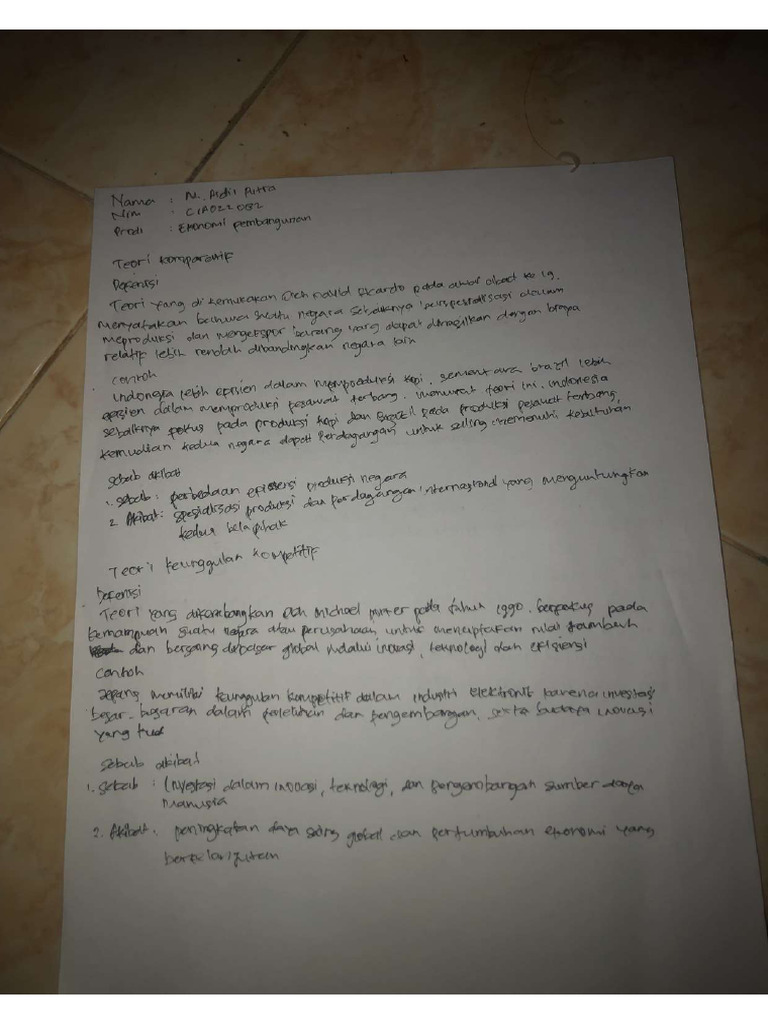 Nama : M. Ardis Putra
Nim : C1A022082
Prodi : Ekonomi pembangunan
Teori Komparatif
Definisi
Teori yang di kemukakan oleh David Ricardo pada awal abad ke 19.
Menyatakan bahwa suatu negara sebaiknya berspesialisasi dalam
meproduksi dan mengekspor barang yang dapat dihasilkan dengan biaya
relatif lebih rendah dibandingkan negara lain
contoh
Indonesia lebih efisien dalam memproduksi kopi, sementara brazil lebih
efisien dalam memproduksi pesawat terbang. menurut teori ini, indonesia
sebaiknya fokus pada produksi kopi dan Brazil pada produksi pesawat terbang,
kemudian kedua negara dapat Perdagangan untuk saling memenuhi kebutuhan
sebab akibat
1. sebab : perbedaan efisiensi produksi negara
2. Akibat : spesialisasi produksi dan perdagangan internasional yang menguntungkan
kedua belapihak
Teori keunggulan kompetitif
Definisi
Teori yang dikembangkan oleh Michael porter pada tahun 1990, berfokus pada
kemampuan suatu negara atau perusahaan untuk menciptakan nilai tambah
dan bersaing dipasar global melalui inovasi, teknologi dan efisiensi
contoh
Jepang memiliki keunggulan kompetitif dalam industri elektronik karena investasi
besar-besaran dalam penelitian dan pengembangan, serta budaya inovasi
yang
sebab akibat
1. Sebab : Investasi dalam inovasi, teknologi, dan pengembangan sumber daya
Manusia
2. Akibat : peningkatan daya saing global dan pertumbuhan ekonomi yang
berkelanjutan